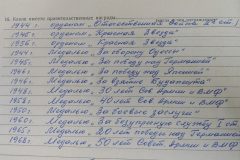 16. Какие имеете правительственные награды
1944 г. орденом „Отечественной войны 2й ст."
1945 г. орденом „Красная Звезда"
1956 г. орденом „Красная Звезда"
1944 г. Медалью „За оборону Одессы"
1945 г. Медалью „За победу над Германией"
1946 г. Медалью „За победу над Японией"
1946 г. Медалью „За взятие Будапешта"
1948 г. Медалью „30 лет Сов Армии и ВМФ"
1958 г. Медалью „40 лет Сов Армии и ВМФ"
1950 г. Медалью „За боевые заслуги"
1960 г. Медалью „За безупречную службу I ст.
1965 г. Медалью „20 лет победы над Германией
1968 г. Медалью „50 лет Советс Армии и ВМФ